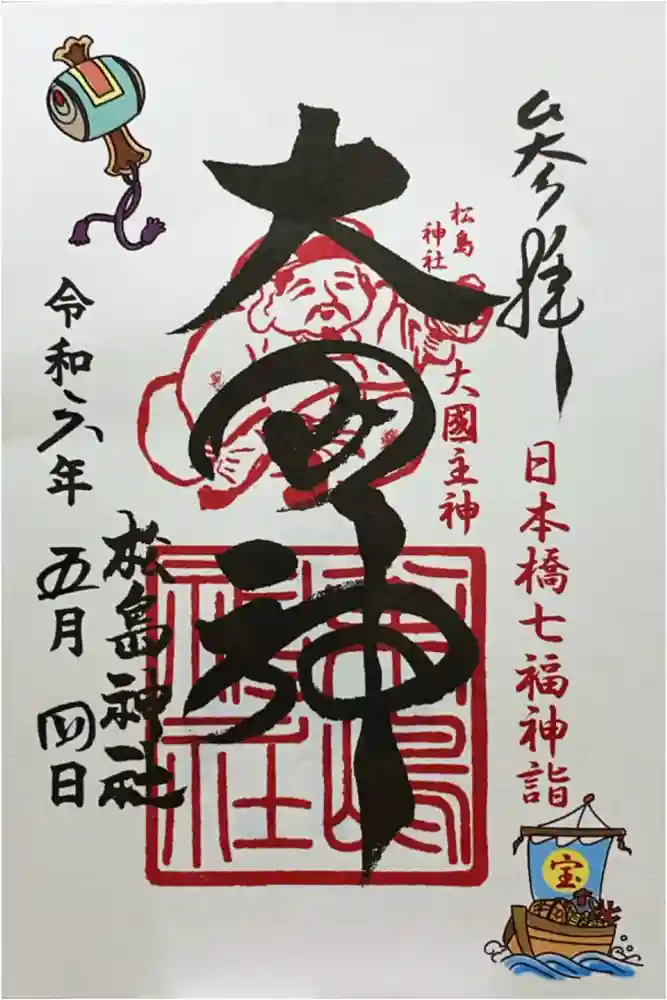 参拝
日本橋七福神詣
松島
神社
大國主神
大国神
松嶋
神社
松島神社
令和六年 五月 四日
宝